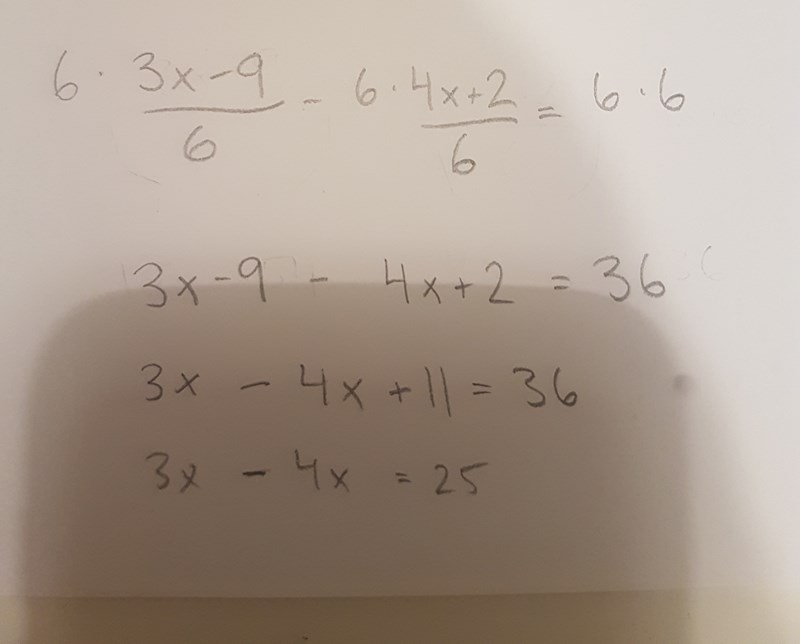 6 · (3x-9)/6 - 6 · (4x+2)/6 = 6 · 6
3x-9 - 4x+2 = 36
3x - 4x + 11 = 36
3x - 4x = 25